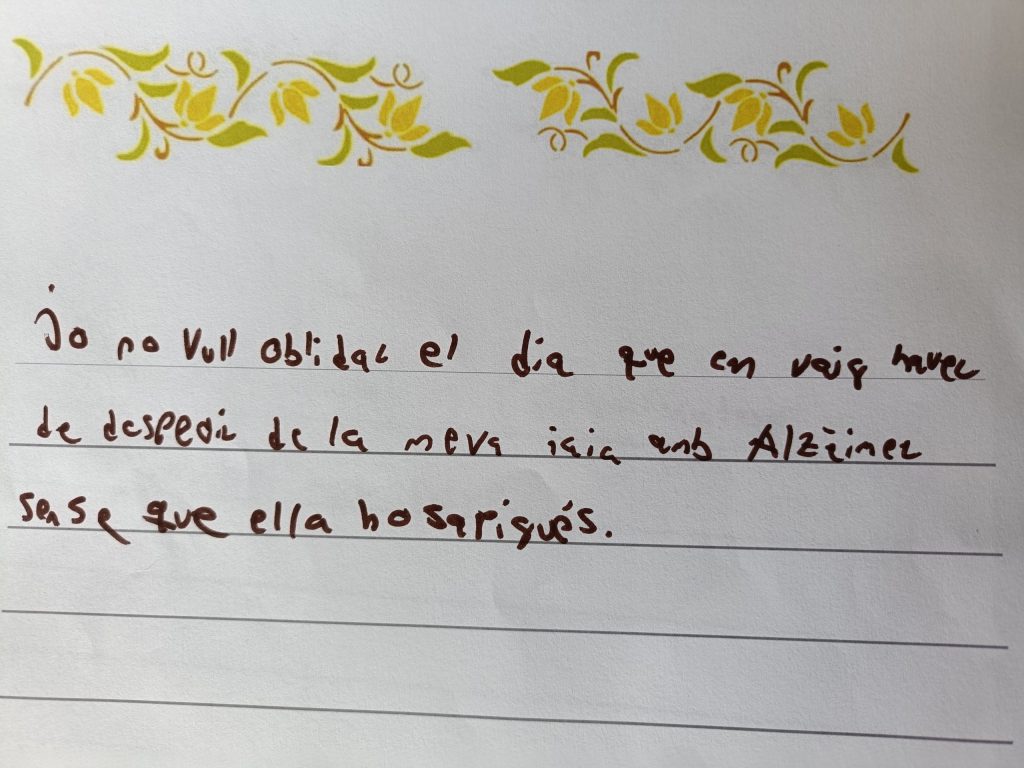 Jo no vull oblidar el dia que em vaig haver
de despedir de la meva iaia amb Alzeimer
sense que ella ho sapigués.